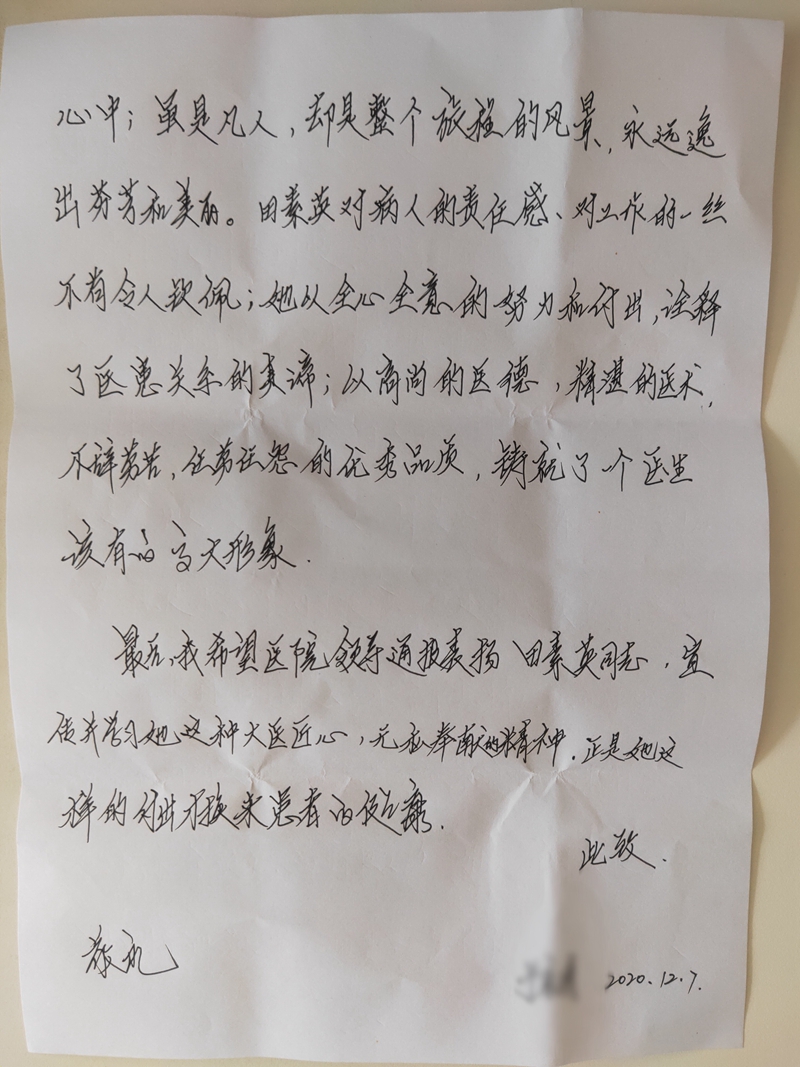 心中；虽是凡人，却是整个旅程的风景，永远逸
出芬芳和美丽。田素英对病人的责任感、对工作的一丝
不苟令人钦佩；她以全心全意的努力和付出，诠释
了医患关系的真谛；以高尚的医德，精湛的医术，
不辞劳苦，任劳任怨的优秀品质，铸就了个医生
该有的高大形象．
最后，我希望医院领导通报表扬田素英同志，宣
传并学习她这种大医匠心，无私奉献的精神．正是她这
样的付出才换来患者的健康．
此致．
敬礼
2020.12.7.